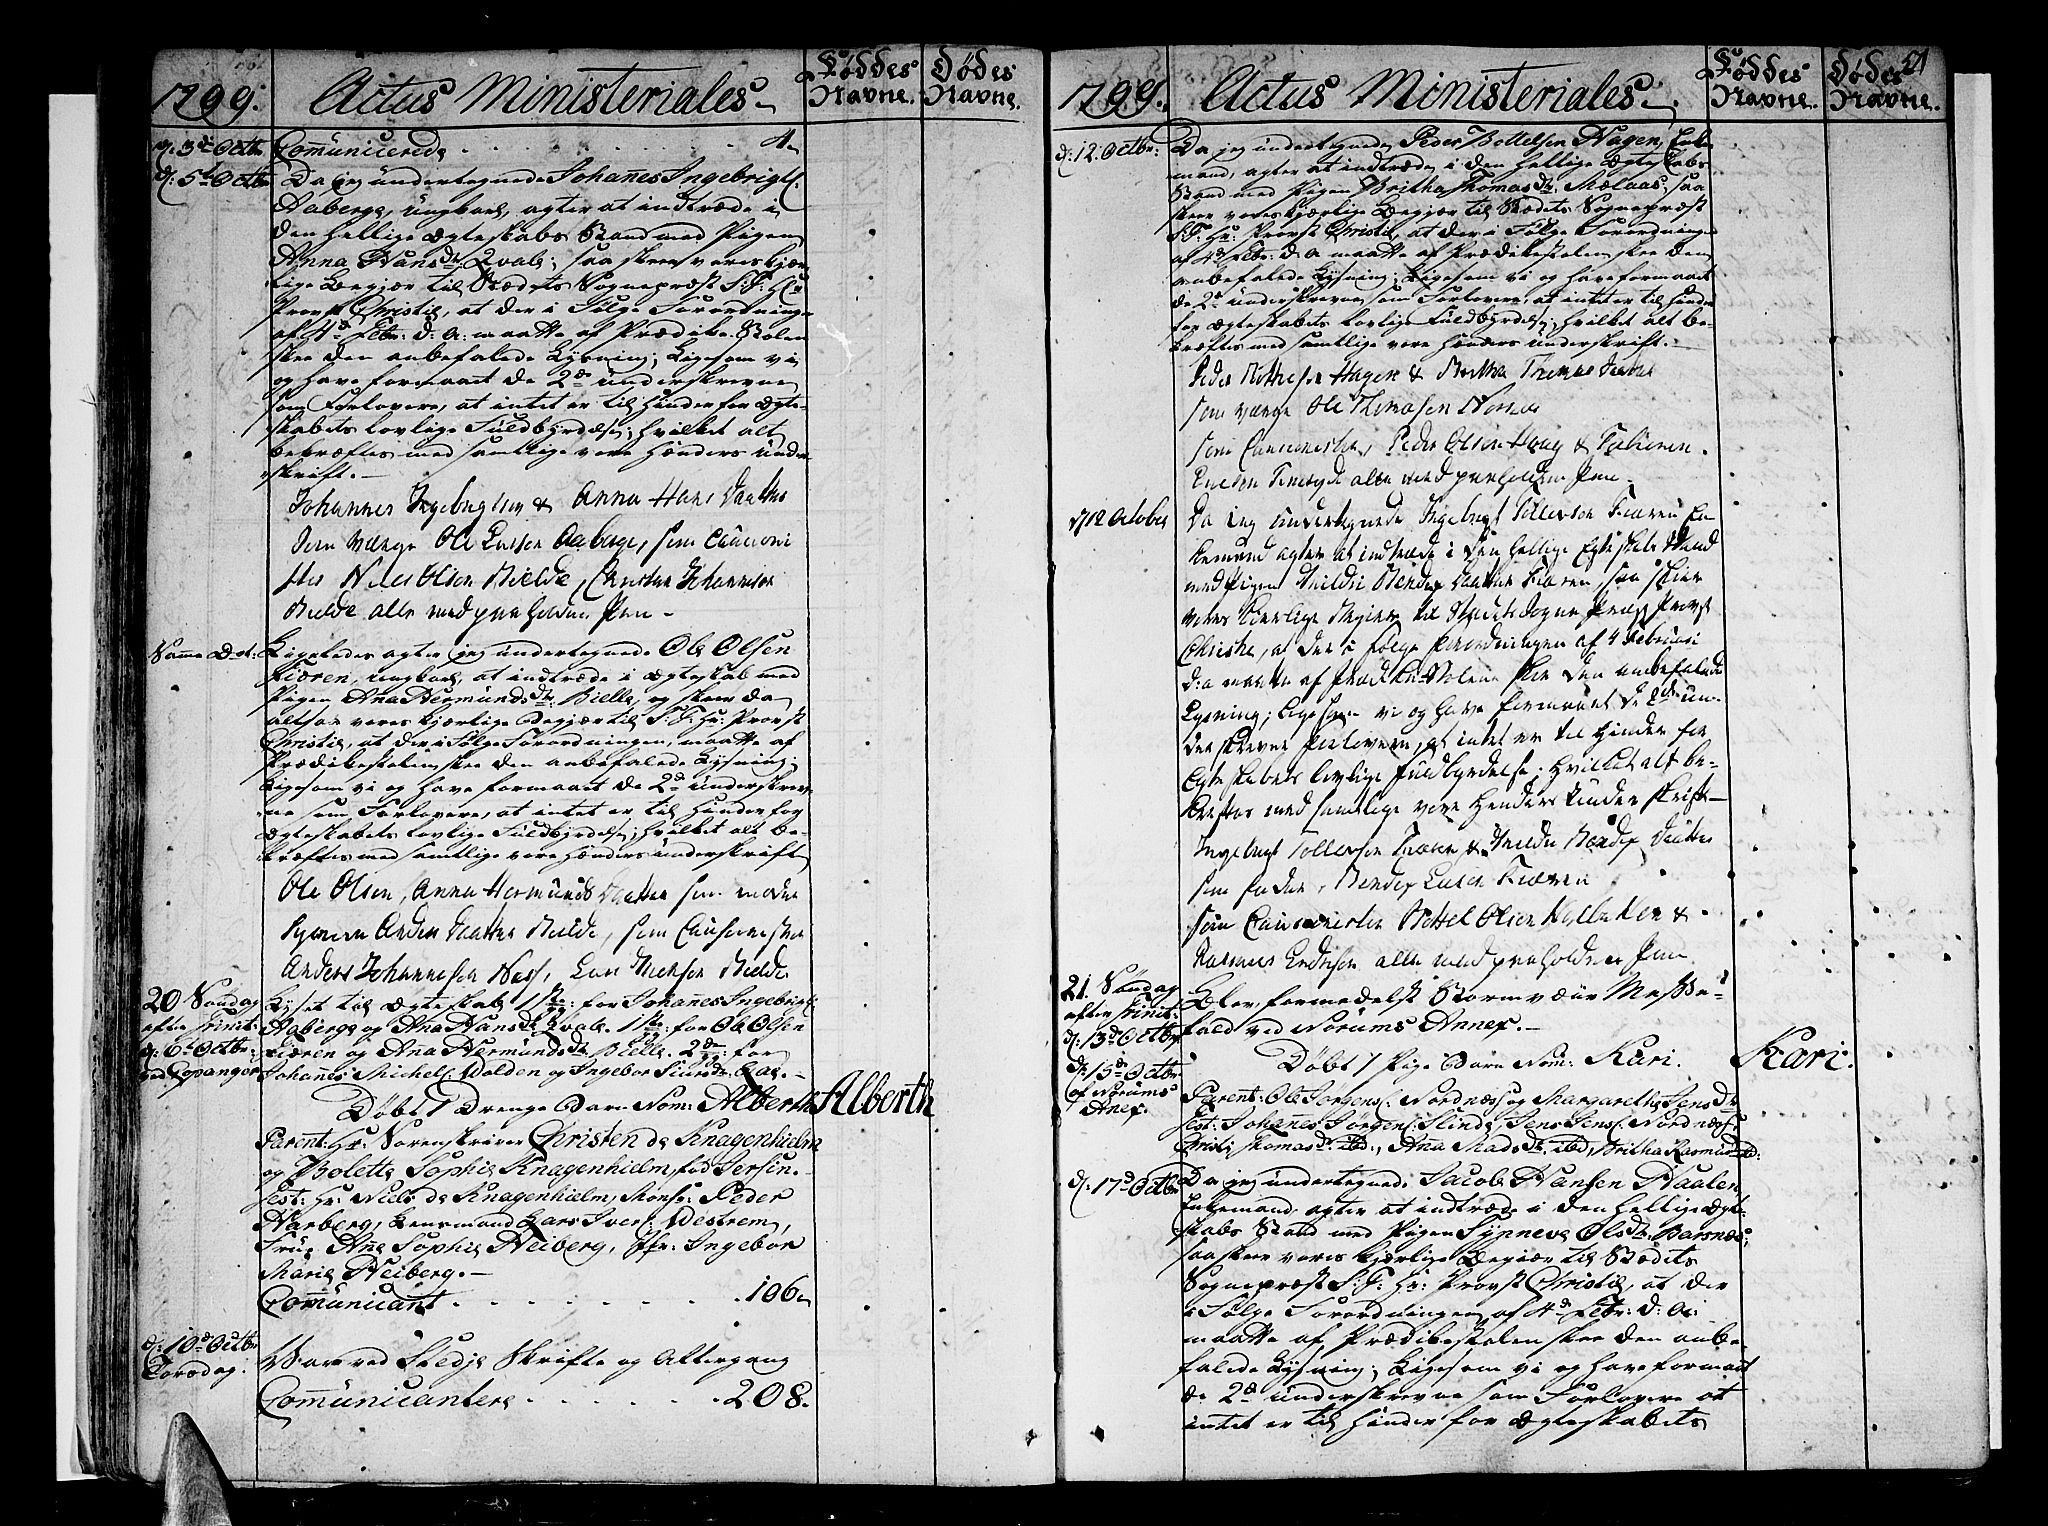 1799.
Actus Ministeriales.
Føddes Navne.
Dødes Navne.
d: 3de Octbr. Com̄unicerede . . . . . . 4.
d: 5te Octbr. Da jeg undertegnede Johanes Ingebrigts:
Aaberge, ungkarl, agter at indtræde i
den hellige Ægteskabs Stand med Pigen
Anna Hansdtr. Qvale; saa skeer vores kjær-
lige Begjær til Stædets Sognepræst S: T: Hr:
Provst Christie, at der i Følge Forordningen
af 4de Febr: d: a: maatte af Prædike-Stolen
skee den anbefalede Lysning; Ligesom vi
og have formaaet de 2de underskrevne
som Forlovere, at intet er til Hinder for Ægte-
skabets lovlige Fuldbyrdelse; hvilket alt
bekræftes med samtlige vore Hænders under-
skrift.
Johannes Ingebrigtsen & Anna Hans Daatter
som Værge Ole Larsen Aaberge, som Cautioni
ster Niels Olsen Bielde, Christen Johannesen
Bielde alle med paaholden Pen
Samme Dat: Ligeledes agter jeg undertegnede Ole Olsen
Fiæren, ungkarl, at indtræde i Ægteskab med
Pigen Ana Hermundsdtr: Bielle, og skeer da
altsaa vores kjærlige Begjær til S: T: Hr: Provst
Christie, at der i Følge Forordningen, maatte af
Prædikestolen skee den anbefalede Lysning;
Ligesom vi og have formaaet de 2de underskrev-
ne som Forlovere, at intet er til Hinder for
Ægteskabets lovlige Fuldbyrdelse; hvilket alt be-
kræftes med samtlige vore Hænders underskrift
Ole Olsen, Anna Hermunds Daatter som
Daatter Bielde, som Cautionister
Anders Johannesen Næss, Lars Bielde
20 Søndag Lyset til Ægteskab 1ste: for Johanes Ingebrigts:
efter Trinit: Aaberge og Ana Hansdtr Qvale. 1ste: for Ole Olsen
d: 6te Octbr: Fiæren og Ana Hermundsdtr. Bielle. 2de: for
ved Copanger Johanes Michels: Volden og Ingebor
Døbt 1 Drenge Barn Nom: Alberth. Alberth
Parent: Hr: Sorenskriver Christen de Knagenhielm
og Bolette Sophie Knagenhielm, fød Jersin.
Test: Hr: Niels de Knagenhielm, Mons: Peder
Harberg, Lensmand Lars Ivers: Vestrem,
Frue Ane Sophie Heiberg, Jfr: Ingebor
Marie Heiberg.
Com̄unicant . . . . . . 106.
d: 10de Octbr. Var ved Stedje Skrifte og Altergang
Torsdag. Com̄unicantere . . . . . . 208.
1799.
Actus Ministeriales.
Føddes Navne.
Dødes Navne.
51
d: 12. Octbr: Da jeg undertegnede Peder Bottelsen Hagen, Enke-
mand, agter at indtræde i den hellige Ægteskabs
Stand med Pigen Britha Thomasdtr. Mælaas, saa
skeer vores kjærlige Begjær til Stædets Sognepræst
S: T: Hr: Provst Christie, at der i Følge Forordningen
af 4de Febr: d: a: maatte af Prædikestolen skee den
anbefalede Lysning; Ligesom vi og have formaaet
de 2de underskrevne som Forlovere, at intet er til Hinder
for Ægteskabets lovlige Fuldbyrdelse; hvilket alt be-
kræftes med samtlige vore Hænders underskrift.
Peder Bottelsen Hagen & Britha Thomas Daatter
som Værge Ole Thomasen
som Cautionister, Peder Olsen Haug &
alle med paaholden Pen.
d/12 October Da ieg undertegnede Ingebrigt Tollevsen Fiæren En-
kemand agter at indtræde i den hellige Egteskabs Stand
med Pigen Bendix Daatter Fiæren saa skeer
vores kierlige Begiær til Stædets Sogne Præst Provst
Christie, at der i følge forordningen af 4 Februari
d: a maatte af Prædike-Stolen skee den anbefalede
Lysning; ligesom vi og have formaaet de 2de un-
derskrevne Forlovere, at intet er til Hinder for
Egteskabets lovlige fuldbyrdelse; hvilket alt be-
kræftes med samtlige vore Hænders underskrift
Ingebrigt Tollevsen Fiæren & Bendix Daatter
som fader, Bendix Larsen Fiæren
som Cautionister Bottel Olsen &
Rasmus Endresen alle med paaholden Pen
21. Søndag Blev formedelst Stormveir Messe-
efter Trinit: fald ved Norums Annex.
d: 13de Octbr.
d: 15de Octbr. Døbt 1 Pige Barn Nom: Kari. Kari.
af Norums Parent: Ole Jørgens: Nordnæs og Margarethe Jensdtr
Anex. Test: Johanes Jørgens: Slinde, Jens Jens: Nordnæs,
Christi Thomasdtr. ibd:, Ana Madsdtr. ibd, Britha ibd:
d: 17de Octbr Da jeg undertegnede Jacob Hansen Haalen
Enkemand, agter at indtræde i den hellige Ægte-
skabs Stand med Pigen Synneve Olsdtr. Barsnæs;
saa skeer vores kjerlige Begjær til Stædets
Sognepræst S: T: Hr: Provst Christie, at der
i Følge Forordningen af 4de Febr: d: a:
maatte af Prædikestolen skee den anbe-
falede Lysning; Ligesom vi og have formaaet
de 2de underskrevne som Forlovere at
intet er til Hinder for Ægteskabets